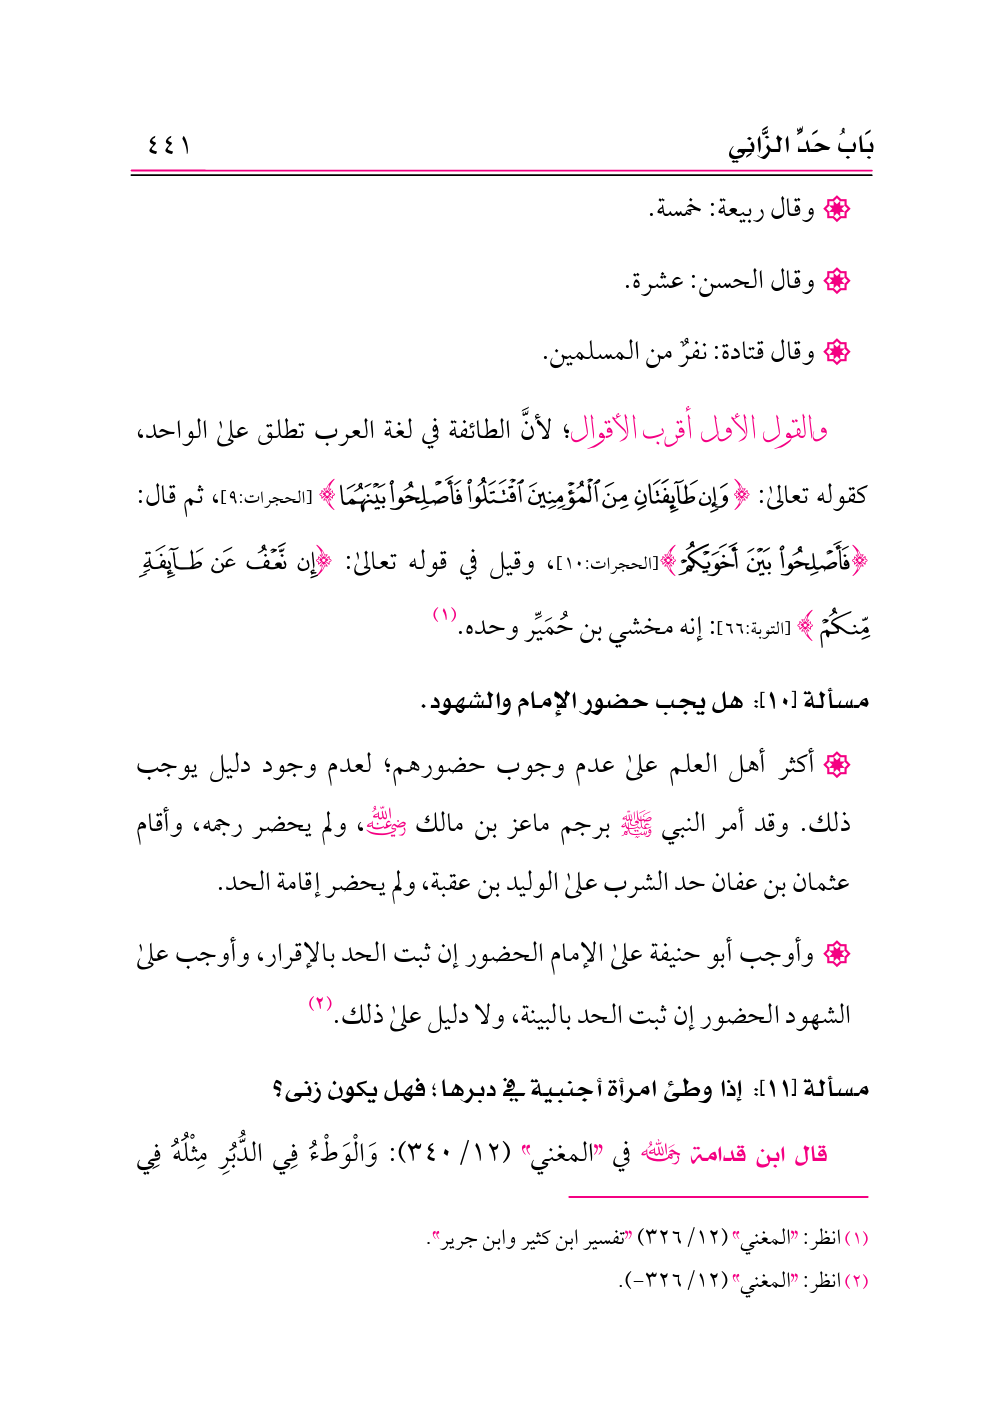 بَابُ حَدِّ الزَّانِي ٤٤١
وقال ربيعة: خمسة.
وقال الحسن: عشرة.
وقال قتادة: نفرٌ من المسلمين.
والقول الأول أقرب الأقوال؛ لأنَّ الطائفة في لغة العرب تطلق علىٰ الواحد،
كقوله تعالىٰ: ﴿وَإِن طَآئِفَتَانِ مِنَ ٱلۡمُؤۡمِنِينَ ٱقۡتَتَلُواْ فَأَصۡلِحُواْ بَيۡنَهُمَا﴾ [الحجرات:٩]، ثم قال:
﴿فَأَصۡلِحُواْ بَيۡنَ أَخَوَيۡكُمۡ﴾[الحجرات:١٠]، وقيل في قوله تعالىٰ: ﴿إِن نَّعۡفُ عَن طَآئِفَةٖ
مِّنكُمۡ﴾ [التوبة:٦٦]: إنه مخشي بن حُمَيِّر وحده.(١)
مسألة [١٠]: هل يجب حضور الإمام والشهود.
أكثر أهل العلم علىٰ عدم وجوب حضورهم؛ لعدم وجود دليل يوجب
ذلك. وقد أمر النبي ﷺ برجم ماعز بن مالك رضي الله عنه، ولم يحضر رجمه، وأقام
عثمان بن عفان حد الشرب علىٰ الوليد بن عقبة، ولم يحضر إقامة الحد.
وأوجب أبو حنيفة علىٰ الإمام الحضور إن ثبت الحد بالإقرار، وأوجب علىٰ
الشهود الحضور إن ثبت الحد بالبينة، ولا دليل علىٰ ذلك.(٢)
مسألة [١١]: إذا وطئ امرأة أجنبية في دبرها؛ فهل يكون زنى؟
قال ابن قدامة رحمه الله في "المغني" (١٢/ ٣٤٠): وَالْوَطْءُ فِي الدُّبُرِ مِثْلُهُ فِي
(١) انظر: "المغني" (١٢/ ٣٢٦) "تفسير ابن كثير وابن جرير".
(٢) انظر: "المغني" (١٢/ ٣٢٦-).